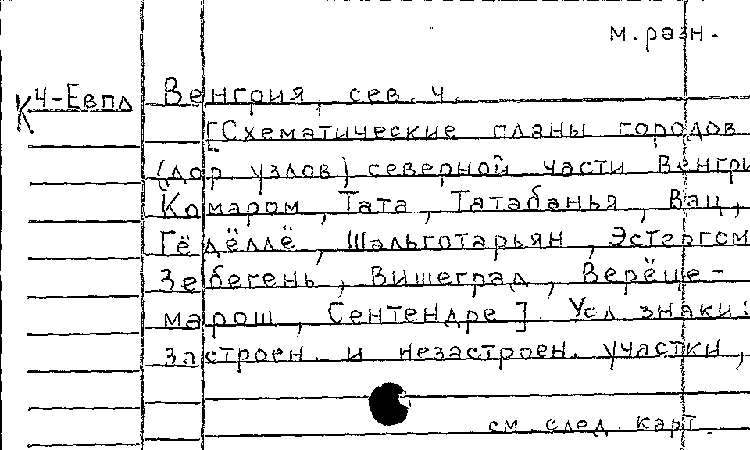 м. разн.
К 4-Евпд Венгрия, сев. ч.
[Схематические планы городов
(дор. узлов) северной части Венгри
Комаром, Тата, Татабанья, Вац,
Гёдёллё, Шальготарьян, Эстергом
Зебегень, Вишеград, Верёце-
марош, Сентендре]. Усл. знаки:
Застроен. и незастроен. участки,
см. след. карт.